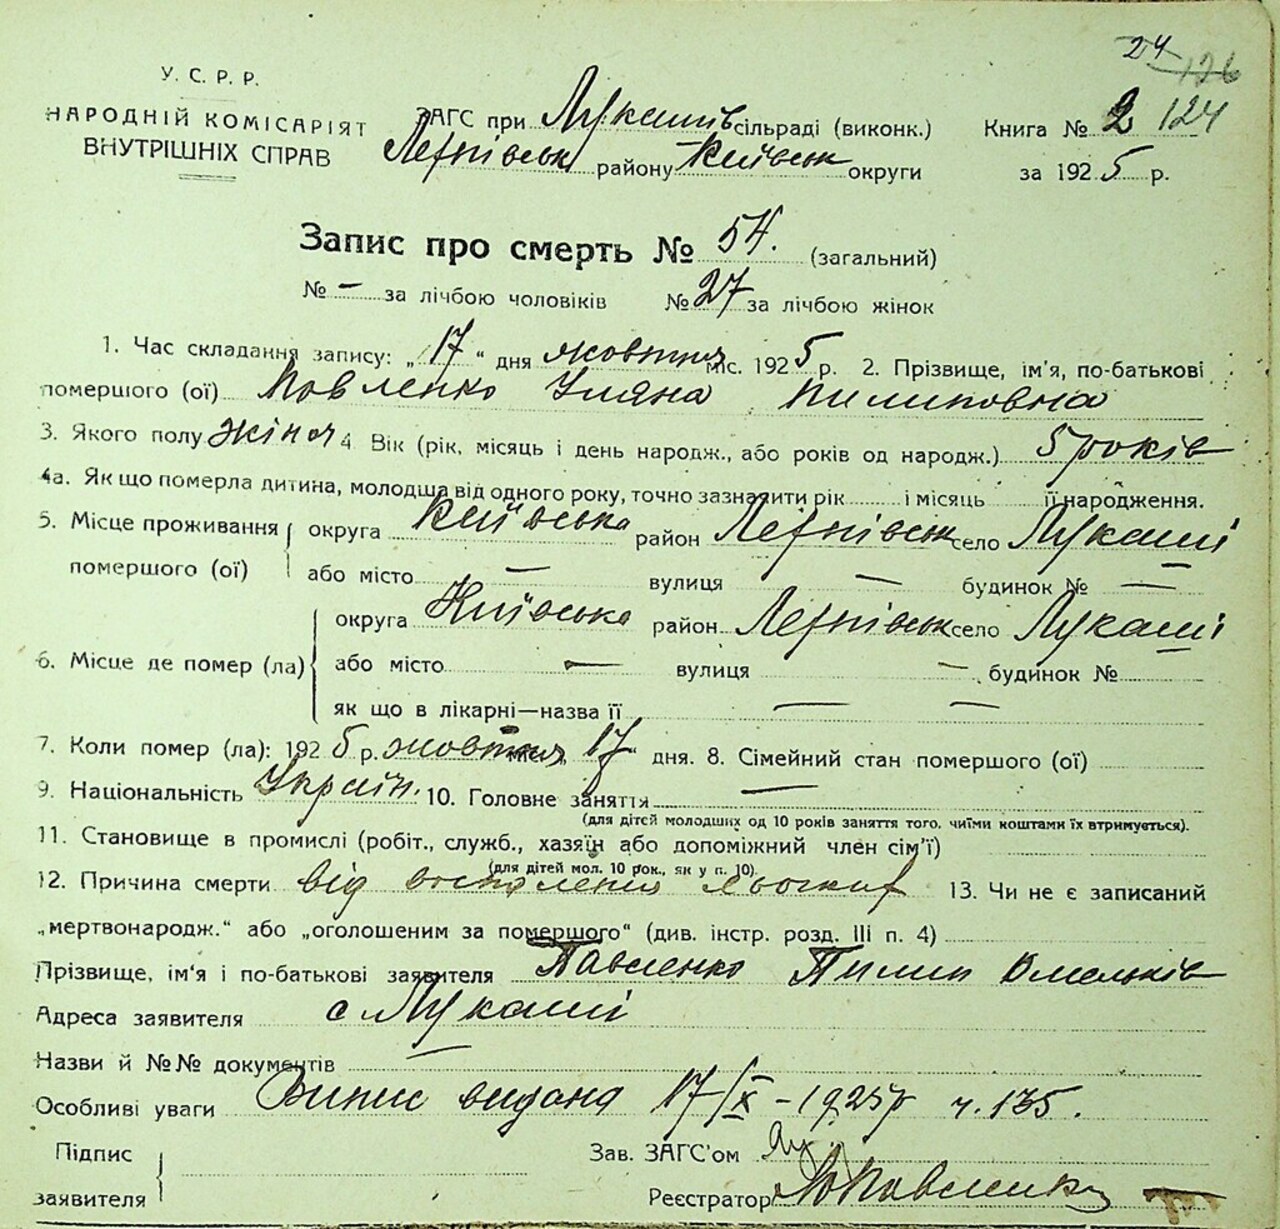 24
126
У. С. Р. Р.
НАРОДНІЙ КОМІСАРІЯТ
ВНУТРІШНІХ СПРАВ
ЗАГС при Лукашів сільраді (виконк.)
району Київськ округи
Книга № 2 124
за 1925 р.
Запис про смерть № 54. (загальний)
№ — за лічбою чоловіків № 27 за лічбою жінок
1. Час складання запису: „17“ дня жовтня міс. 1925 р. 2. Прізвище, ім'я, по-батькові
помершого (ої) Повленко Уляна Пилиповна
3. Якого полу жіноч 4 Вік (рік, місяць і день народж., або років од народж.) 5 років
4а. Як що померла дитина, молодша від одного року, точно зазначити рік і місяць її народження.
5. Місце проживання помершого (ої) округа Київська район село Лукаші
або місто — вулиця — будинок № —
6. Місце де помер (ла) округа Київська район село Лукаші
або місто — вулиця — будинок №
як що в лікарні—назва її — —
7. Коли помер (ла): 1925 р. жовтня міс. „17“ дня. 8. Сімейний стан помершого (ої)
9. Національність Україн. 10. Головне заняття —
(для дітей молодших од 10 років заняття того, чиїми коштами їх втримується).
11. Становище в промислі (робіт., служб., хазяїн або допоміжний член сім'ї)
(для дітей мол. 10 рок., як у п. 10)
12. Причина смерти від восполения 13. Чи не є записаний
„мертвонародж.“ або „оголошеним за помершого“ (див. інстр. розд. III п. 4)
Прізвище, ім'я і по-батькові заявителя Павленко Пилип Омельків
Адреса заявителя с Лукаші
Назви й №№ документів —
Особливі уваги Випис видано 17/X – 1925 р ч. 135.
Підпис заявителя
Зав. ЗАГС'ом
Реєстратор Повленко